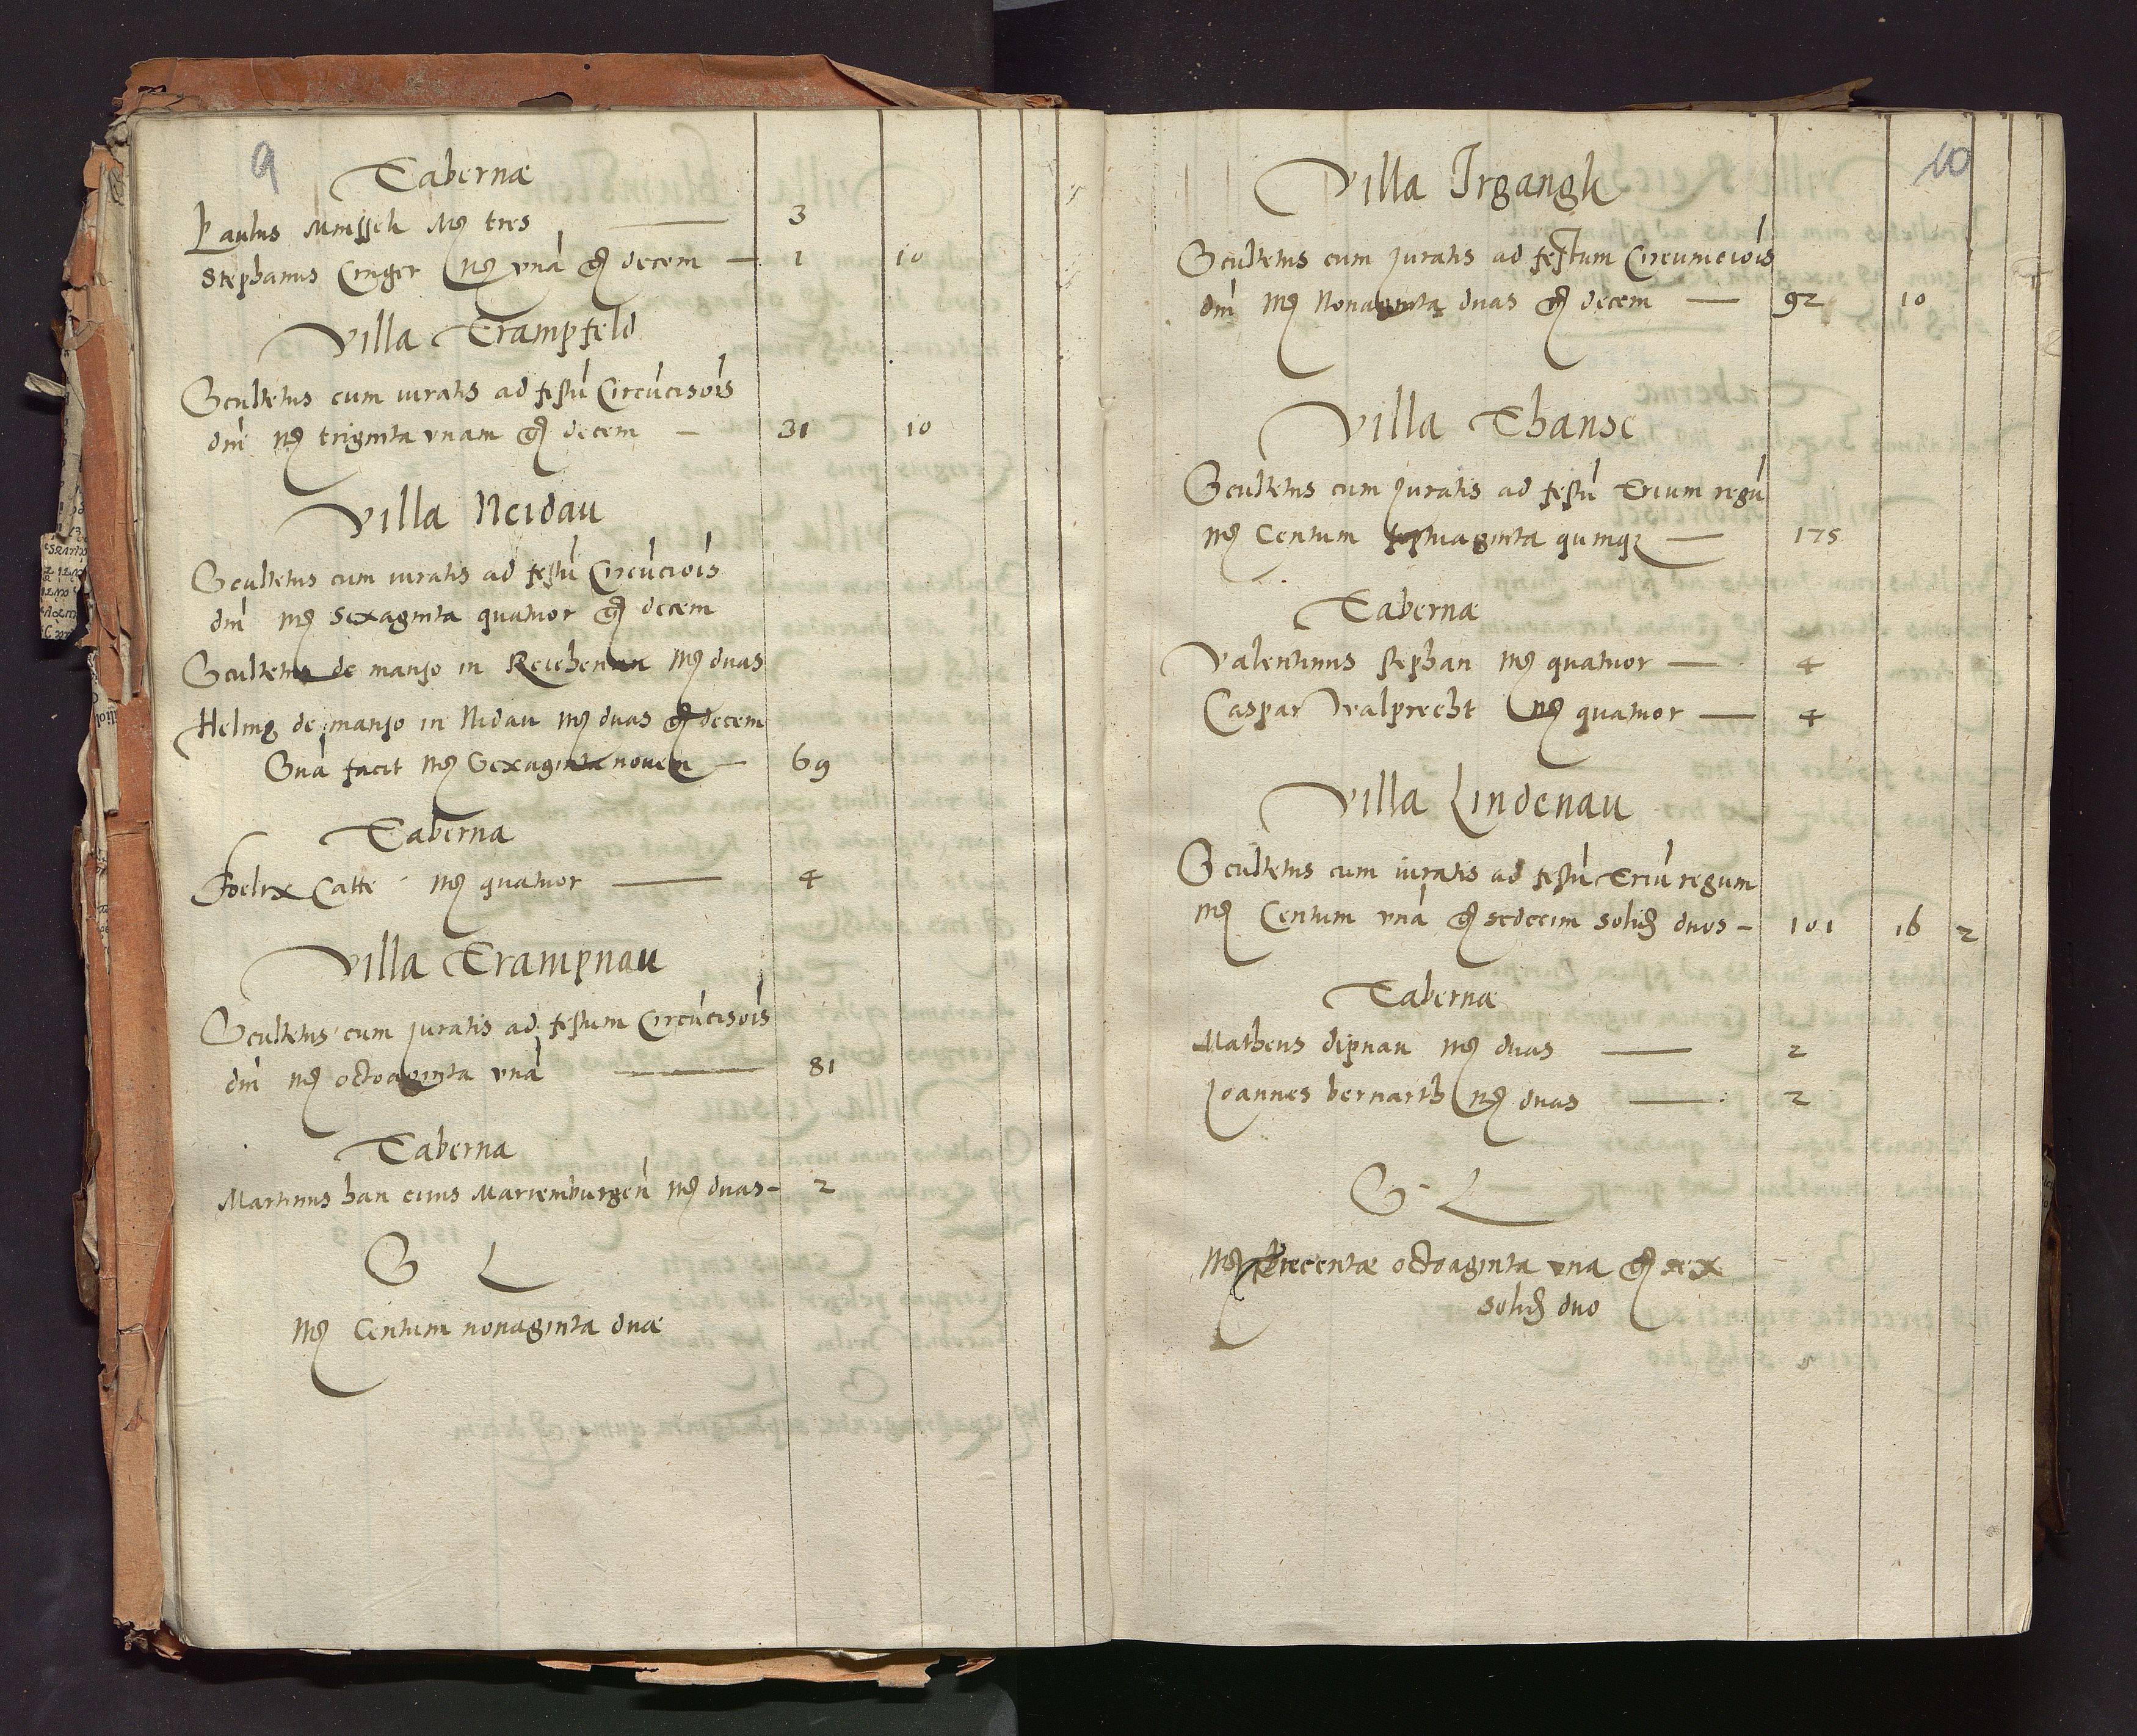 9
Tabernæ
Paulus Mussek Mꝭ tres — 3
Stephanus Cinger Mꝭ vnā gꝭ decem — 1 10
Villa Trampfeld
Scultetus cum iuratis ad festū Circūcisōis
dnī Mꝭ triginta vnam gꝭ decem — 31 10
Villa Neidau
Scultetus cum iuratis ad festū Circūciōis
dnī Mꝭ sexaginta quatuor gꝭ decem
Scultetus de manso in Mꝭ duas
Helmg de manso in Nidau Mꝭ duas gꝭ decem
Suā facit Mꝭ Sexaginta novem — 69
Taberna
Foelix Catte Mꝭ quatuor — 4
Villa Trampnau
Scultetus cum juratis ad festum Circūcisōis
dnī Mꝭ octoaginta vnā — 81
Taberna
Martinus han ciuis Mariemburgeñ Mꝭ duas – 2
S L
Mꝭ Centum nonaginta duæ
10
Villa Irgangk
Scultetus cum juratis ad festum Circumciōis
dnī Mꝭ Nonaginta duas gꝭ decem — 92 10
Villa Thanse
Scultetus cum juratis ad festū Trium regū
Mꝭ Centum septuaginta quinqꝫ — 175
Tabernæ
Valentinus stephan Mꝭ quatuor — 4
Caspar Walprecht Mꝭ quatuor — 4
Villa Lindenau
Scultetus cum iuratis ad festū Triū regum
Mꝭ Centum vnā gꝭ sedecim solidꝭ duos – 101 16 2
Tabernæ
Matheus dipnau Mꝭ duas — 2
Joannes bernarth Mꝭ duas — 2
S - L
Mꝭ Trecentæ octoaginta vna gꝭ sex
solidꝭ duo